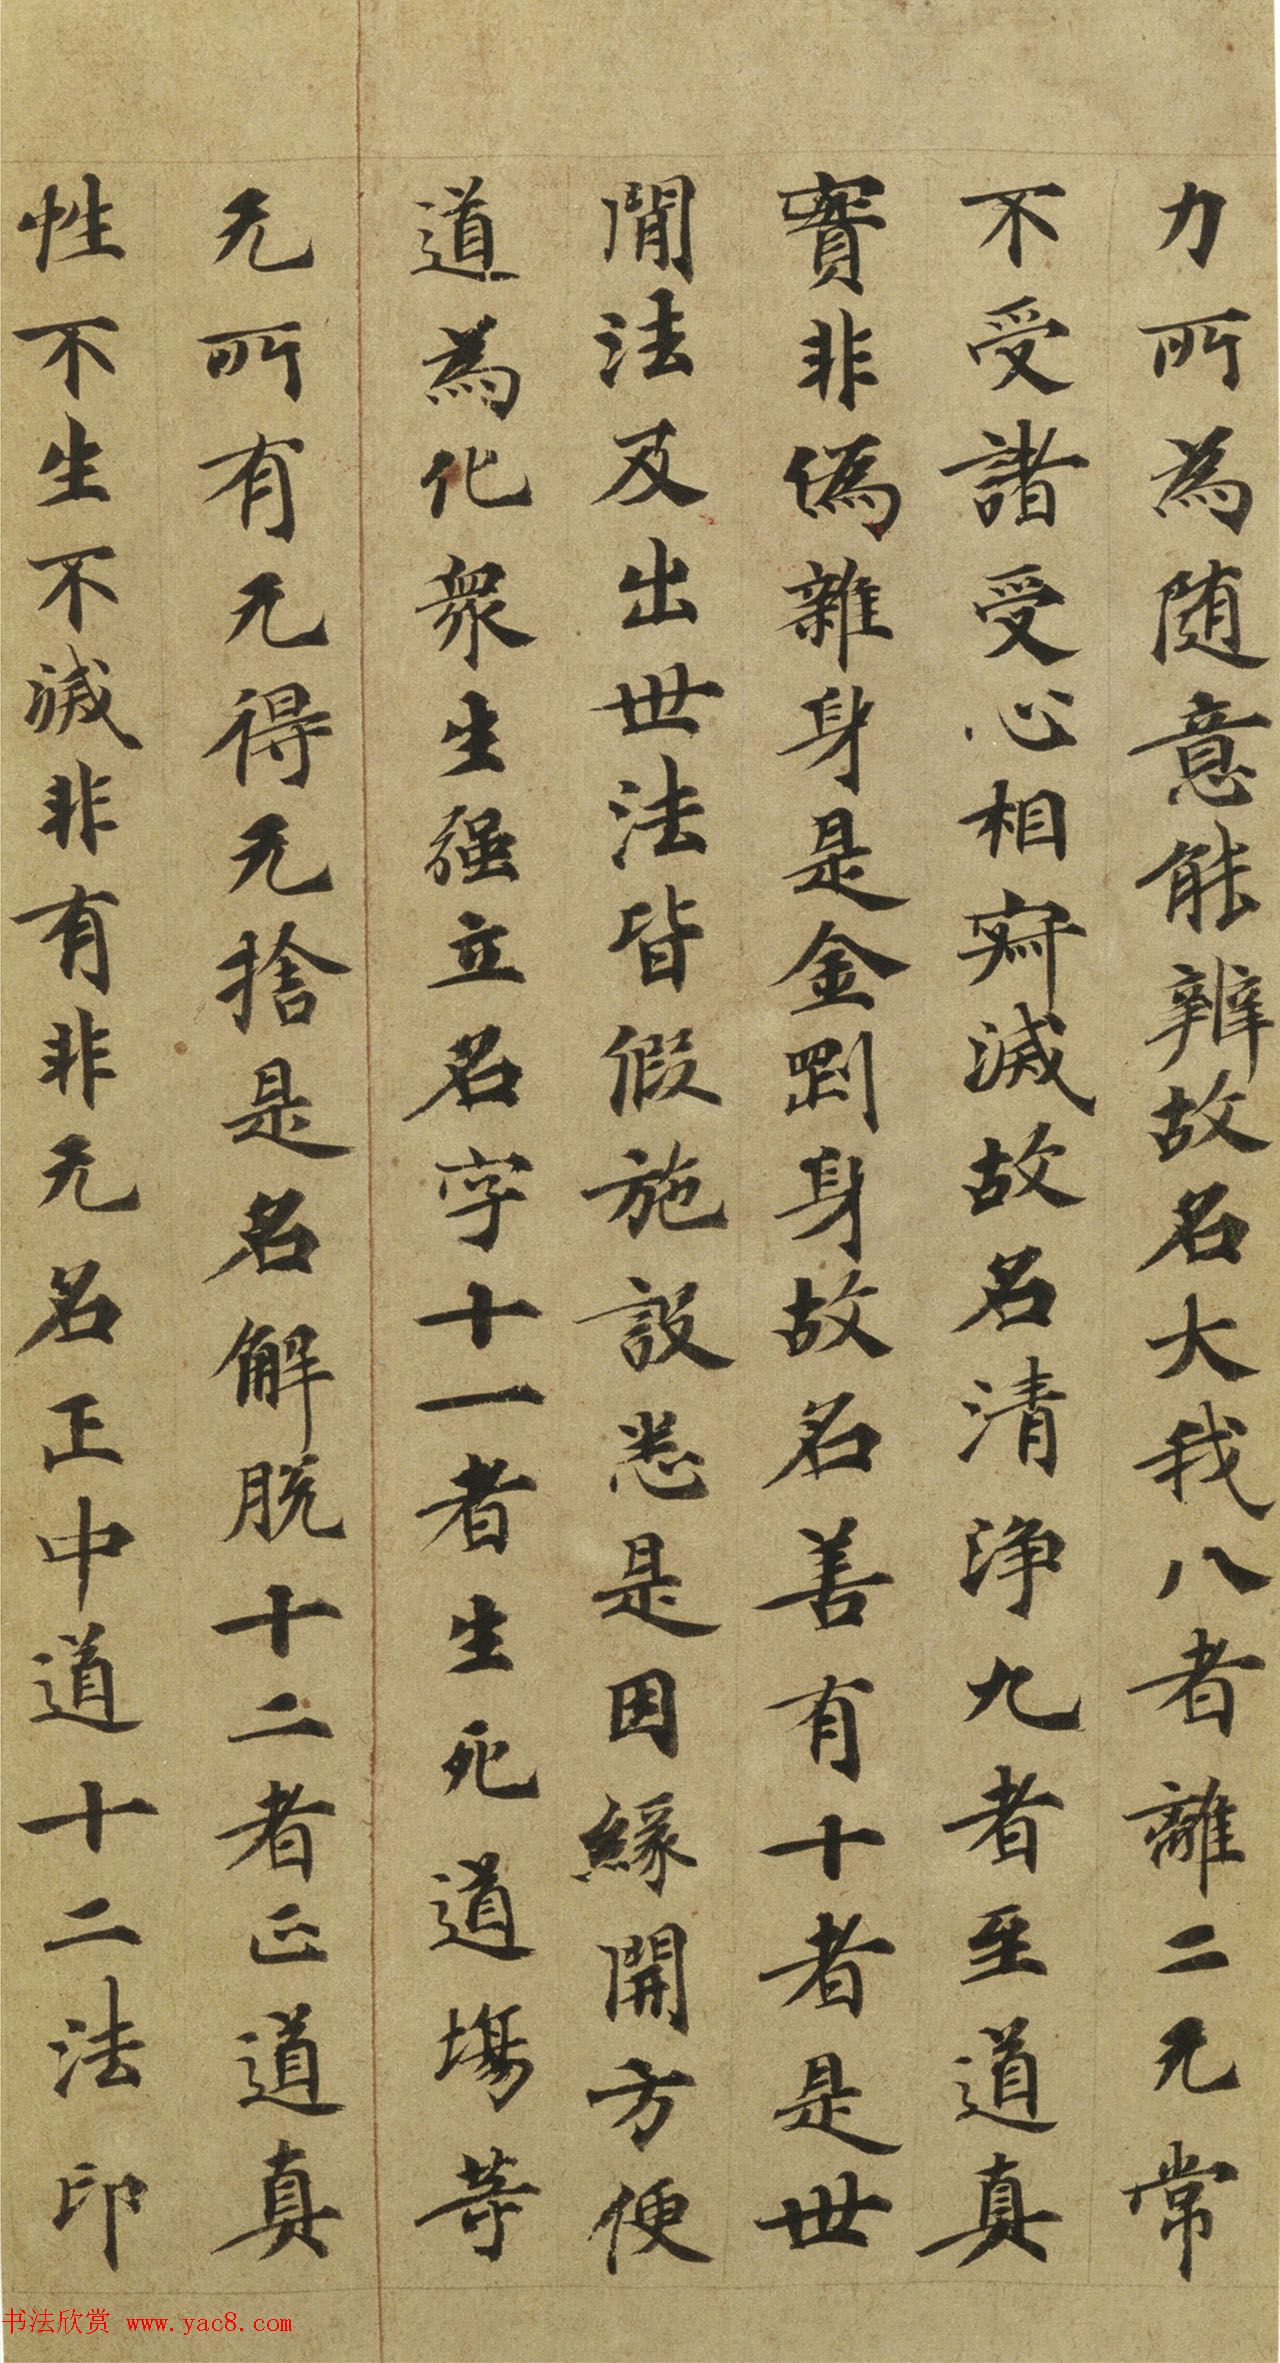 力所為随意能辨故名大我八者離二无常
不受諸受心相寂滅故名清淨九者至道真
實非偽雜身是金剛身故名善有十者是世
間法及出世法皆假施設悉是因緣開方便
道為化衆生强立名字十一者生死道場等
无所有无得无捨是名解脱十二者正道真
性不生不滅非有非无名正中道十二法印
书法欣赏 www.yac8.com